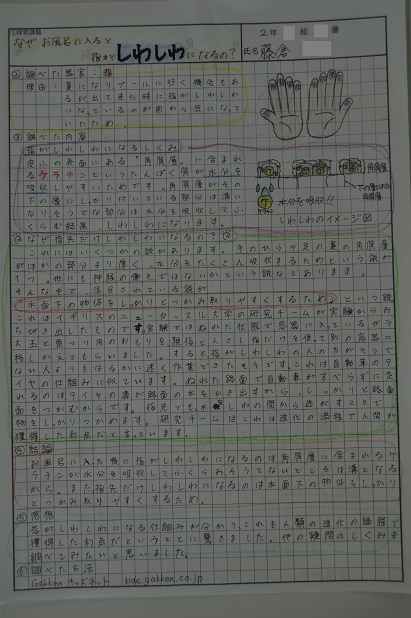 探究課題
なぜお風呂に入ると
指がしわしわになるの？
2年 組 番
氏名 藤倉
① 調べた器官：指
理由：夏になりプールに行く機会もあ
るが出て来た時に指がしわしわ
になっているのが前から気になって
いたため。
② 調べた内容
指がしわしわになるしくみ
皮ふの表面にある「角質層」に含まれ
るケラチンというたんぱく質が水分を
吸収しやすいためです。角質層がその
下の層にしっかり付いている部分は溝に
なり、そうでない部分は水分を吸収してふ
くらむ結果、しわしわになります。
角質層
水分を吸収!!
しわしわのイメージ図
なぜ指先だけしわしわになるの？
これにはいくつかの説があります。手のひらや足の裏の角質層
がほかの部分より厚く、水分をたくさん吸収するためという説が
1つ。他にも神経の働きではないかという説などあります。
そんな中で、注目されている説が
「水面下の物体をしっかりとつかみ取りやすくするため」という説
これはイギリスのニューカッスル大学の研究チームが実験からみ
ちびき出したものです。実験ではぬれた状態で容器に入っているガラ
ス玉と魚つり用のおもりを親指と人さし指だけを使って別の容器に
移しかえてもらいました。すると指がしわしわの人の方がそうで
ない人よりもはるかに速く作業できたそうです。これは自動車のタ
イヤの仕組みに似ています。ぬれた路面で自動車がすべらずに走
れるのはタイヤの溝が路面の水をかき出すから、しっかりと路面
面をつかむからです。指先でも水がしわの間から逃がすことで
物をしっかりつかめます。研究チームはこれは進化の過程で人間が
獲得した利点だと言っています。
④ 結論
お風呂に入った後に指がしわしわになるのは角質層に含まれるケ
ラチンが水分を吸収してふくらみ、そうでないところは溝となる
から。また指先だけしわしわになるのは水面下の物体をしっかり
とつかみ取りやすくするため。
⑤ 感想
指がしわしわになる仕組みが分かり、これも人類の進化の過程で
獲得した利点だということに驚きました。他の疑問のしくみも
調べてみたいと思いました。
⑥ 調べた方法
Gakken キッズネット kids.gakken.co.jp